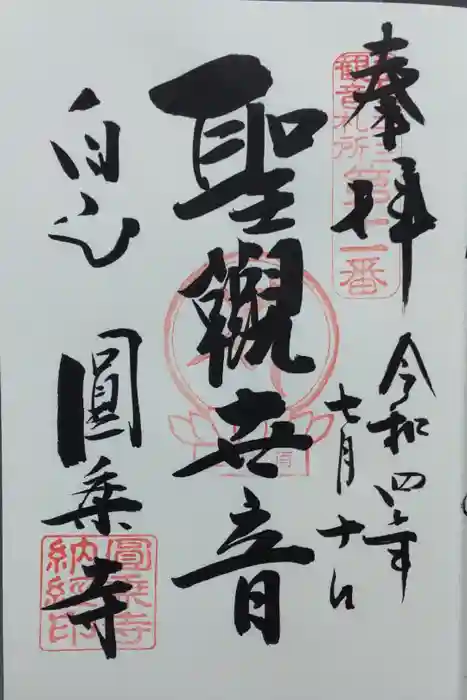 奉拝
観音札所
第十一番
令和四年
七月十日
聖觀世音
白山
圓乗寺
圓乗寺
納経印